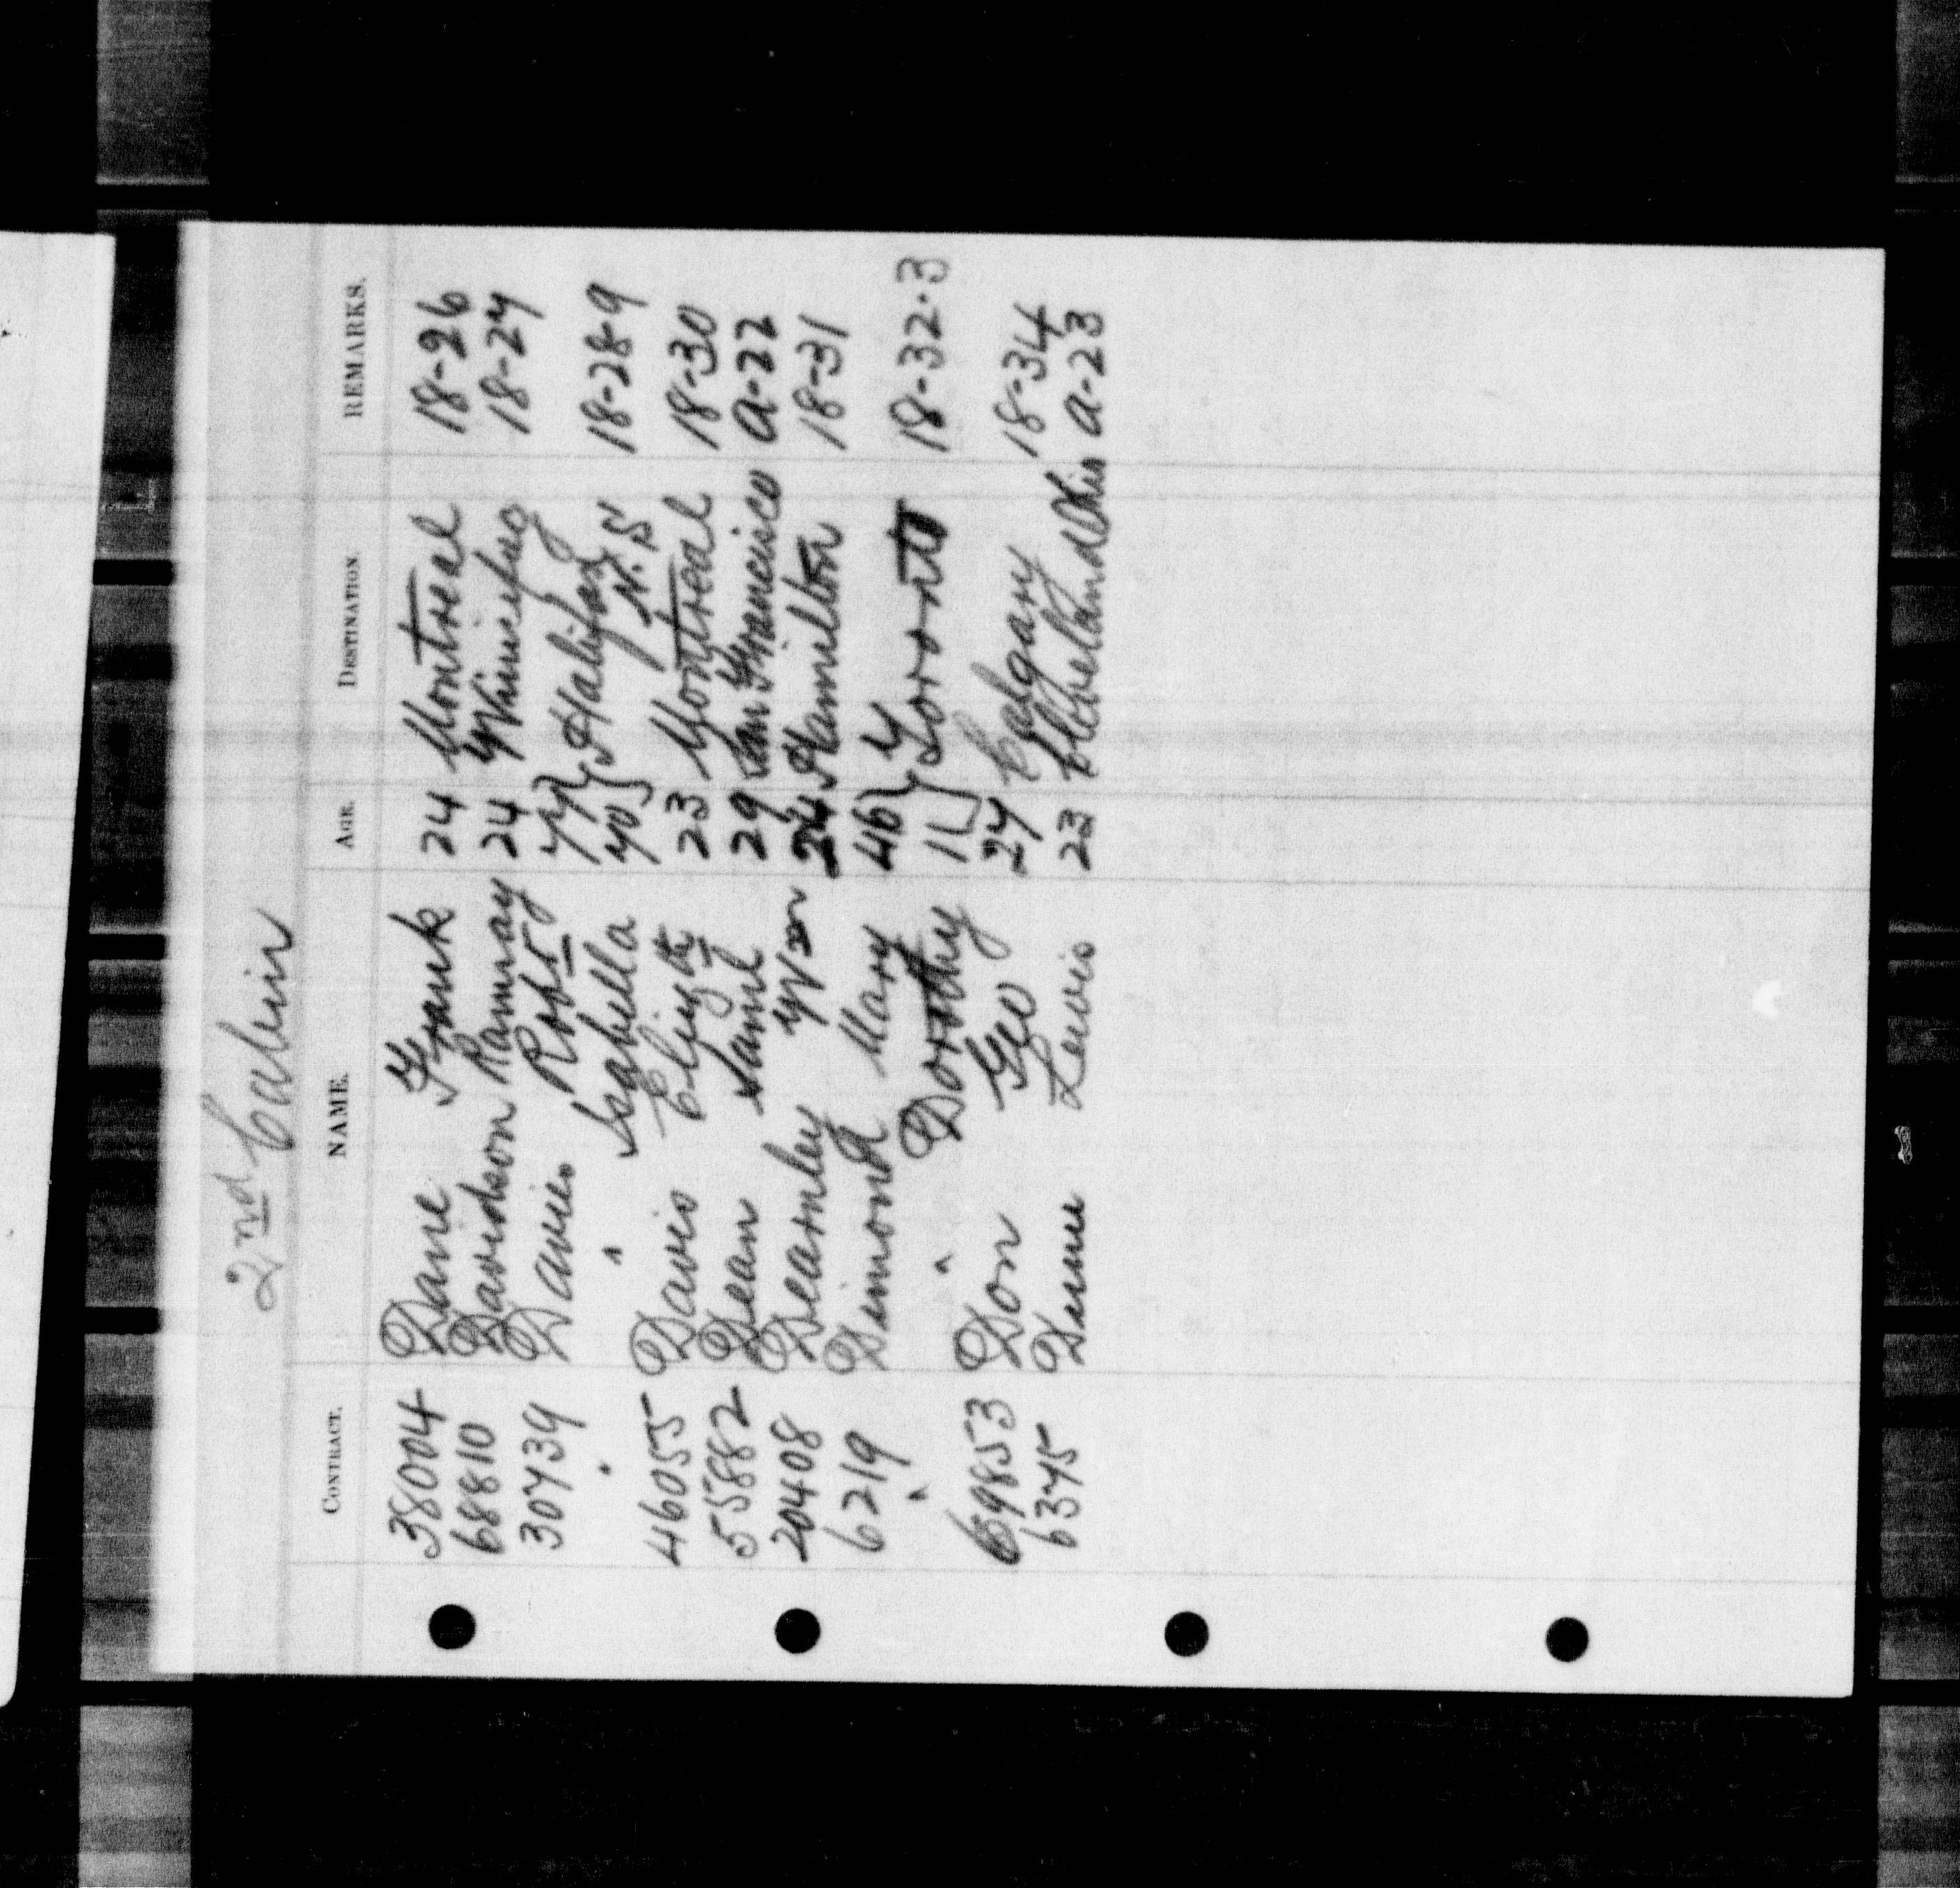 2nd Cabin
CONTRACT. NAME. AGE. DESTINATION REMARKS.
38004 Dane Frank 24 Montreal 18-26
68810 Davidson Rannay 24 Winnipeg 18-27
30739 Davies Robt 77 } Halifax
" " Isabella 70 } N.S. 18-28-9
46055 Davis Elizth 23 Montreal 18-30
55882 Dean Saml 29 San Francisco A-22
20408 Dearnley Wm 24 Hamilton 18-31
6219 Dimond Mary 46 }
" " Dorothy 11 } Toronto 18-32-3
69853 Don Geo 27 Calgary 18-34
6375 Lewis 23 Cleveland Ohio A-23